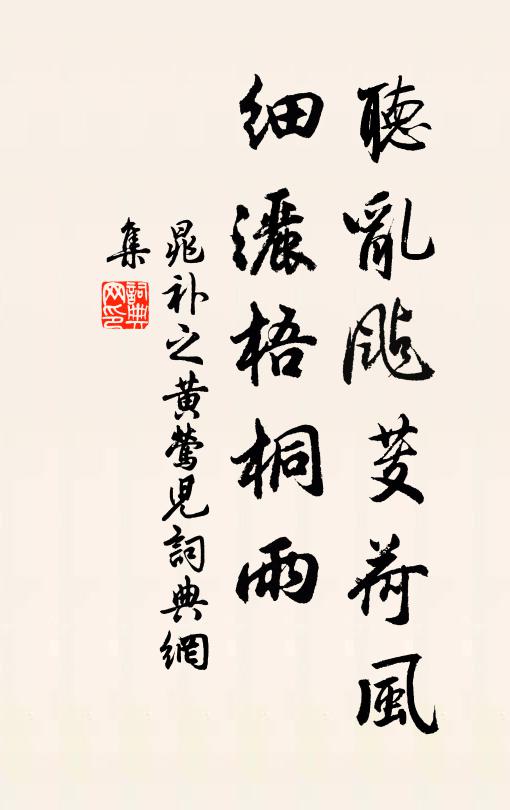 聽亂颭芰荷風
細灑梧桐雨
晁補之黃鶯兒詞典網
集
詞典
网印